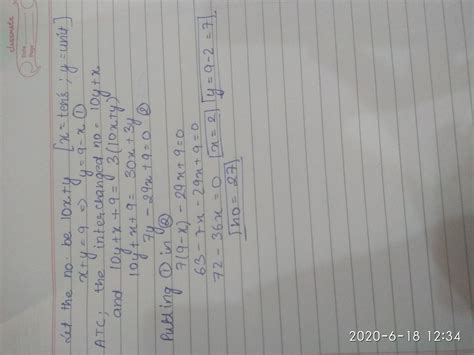 Let the no. be 10x+y [x=ten's ; y=unit]
x+y=9 ⇒ y=9-x ①
ATC, the interchanged no= 10y+x
and 10y+x+9= 3(10x+y)
10y+x+9= 30x+3y
7y-29x+9=0 ②
Putting ① in ②
7(9-x)-29x+9=0
63-7x-29x+9=0
72-36x=0 [x=2] [y=9-2=7]
[no=27]
2020-6-18 12:34